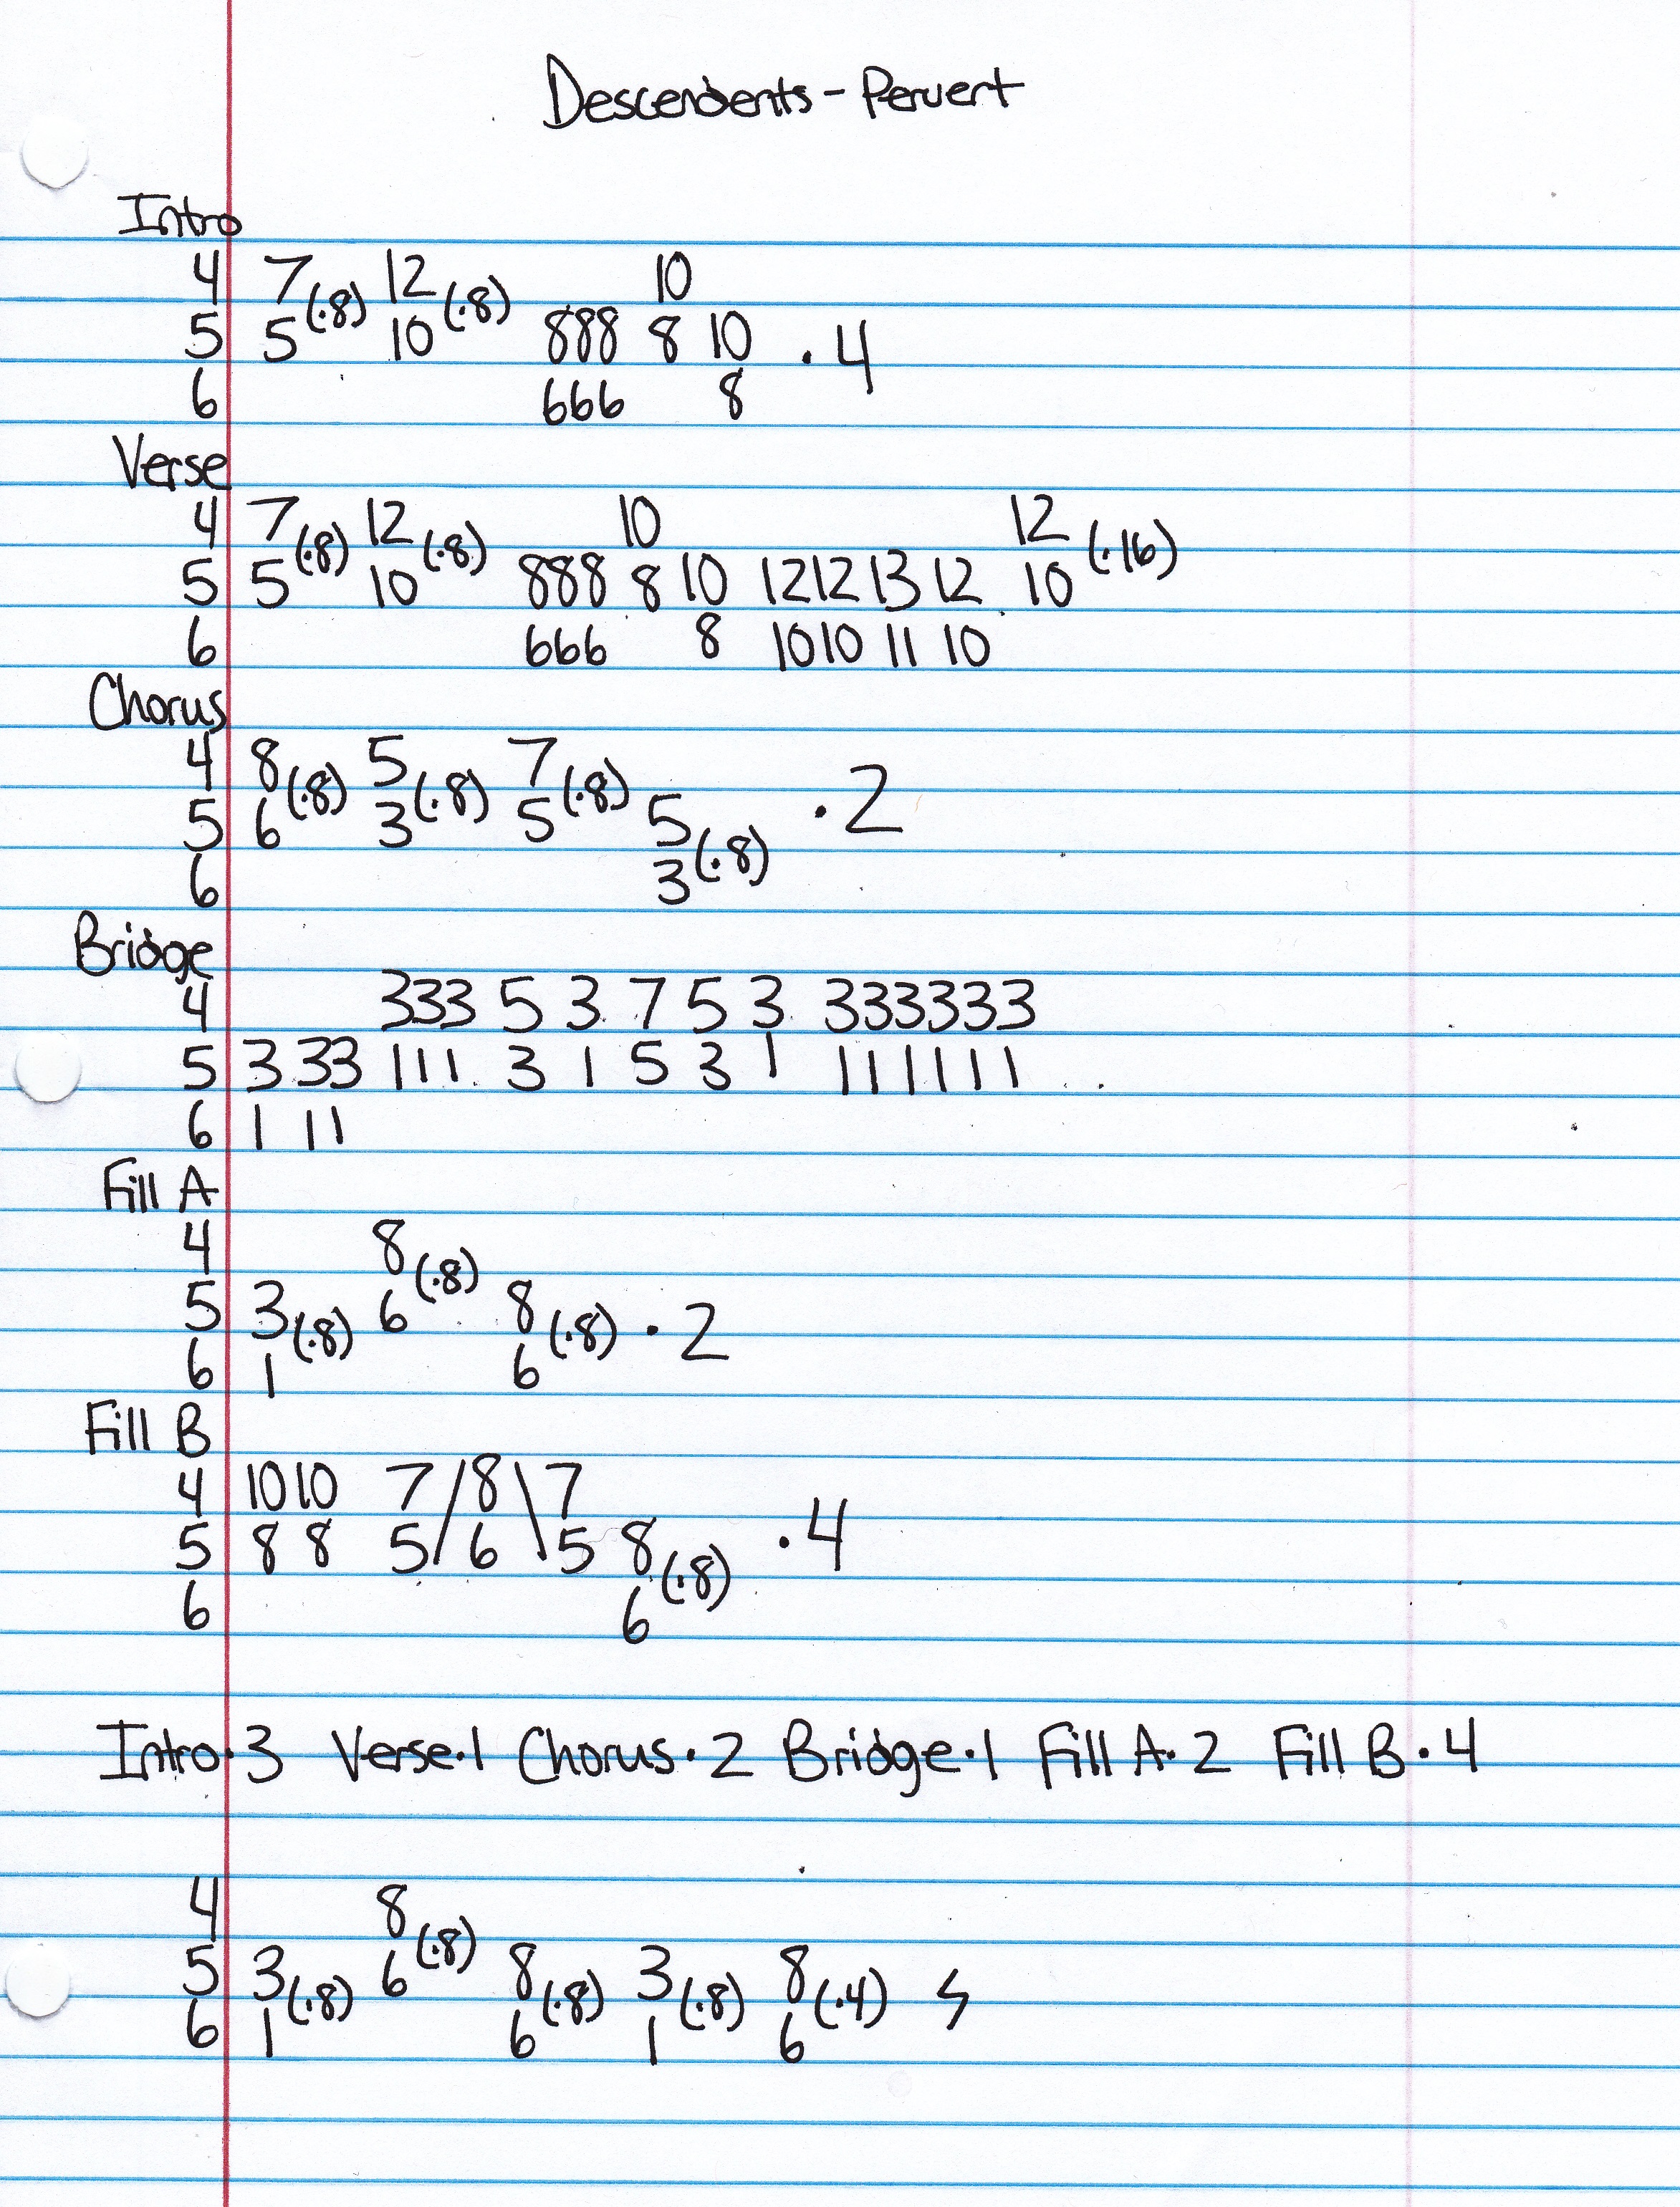 Descendents - Pervert
Intro
4 7 (·8) 12 (·8) 10
5 5 10 888 8 10 · 4
6 666 8
Verse
4 7 (·8) 12 (·8) 10 12 (·16)
5 5 10 888 8 10 12 12 13 12 10
6 666 8 10 10 11 10
Chorus
4 8 (·8) 5 (·8) 7 (·8) · 2
5 6 3 5 5 (·8)
6 3
Bridge
4 333 5 3 7 5 3 333333
5 3 33 111 3 1 5 3 1 111111
6 1 11
Fill A
4 8 (·8)
5 3 (·8) 6 8 (·8) · 2
6 1 6
Fill B
4 10 10 7 / 8 \ 7
5 8 8 5 / 6 \ 5 8 (·8) · 4
6 6
Intro·3 Verse·1 Chorus·2 Bridge·1 Fill A·2 Fill B·4
4 8 (·8)
5 3 (·8) 6 8 (·8) 3 (·8) 8 (·4)
6 1 6 1 6